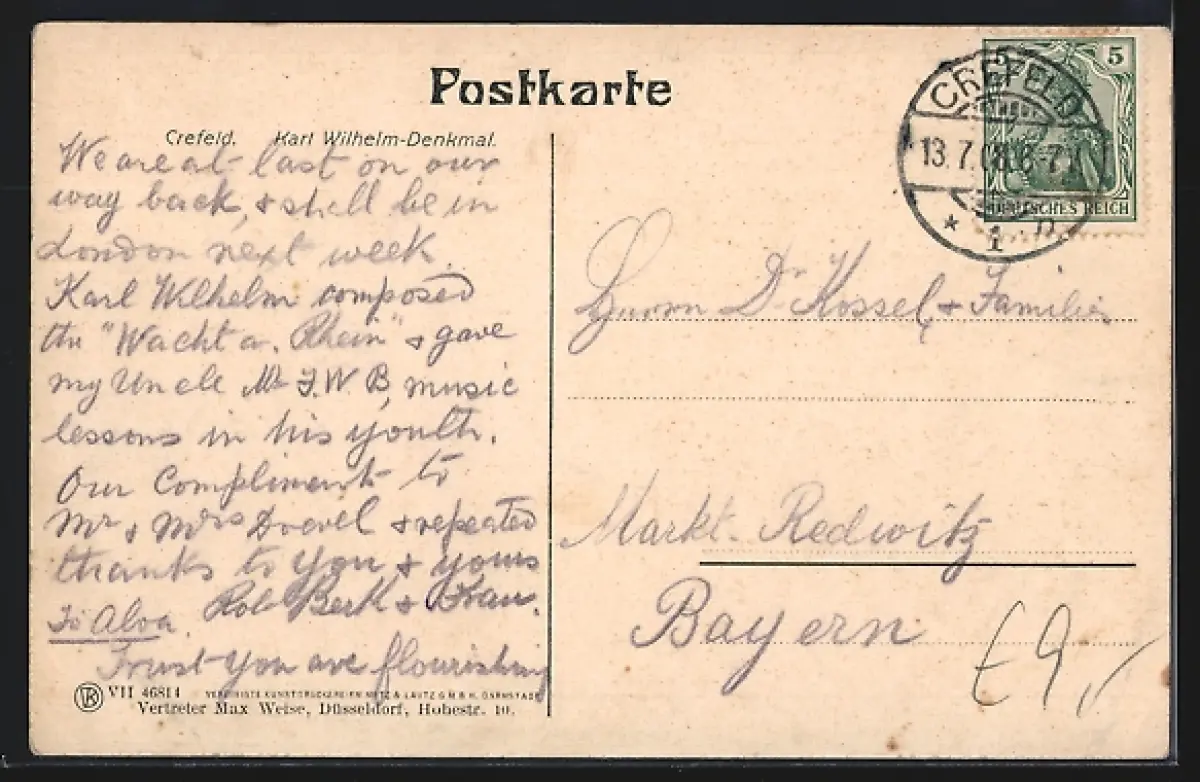 Postkarte
Crefeld. Karl Wilhelm-Denkmal.
We are at last on our
way back, & shall be in
London next week.
Karl Wilhelm composed
the "Wacht a. Rhein" & gave
my Uncle Mr F.W.B. music
lessons in his youth.
Our Compliments to
Mr & Mrs & repeated
thanks to you & yours
Rob Berk & Frau.
To Alva.
Trust you are flourishing
VII 46814 VEREINIGTE KUNSTDRUCKEREIEN METZ & LAUTZ G.M.B.H. DARMSTADT
Vertreter Max Weise, Düsseldorf, Hohestr. 10.
5 5
DEUTSCHES REICH
CREFELD
13.7.08.6-7N
* 1 n
Herrn Dr Kossel & Familie
Markt-Redwitz
Bayern